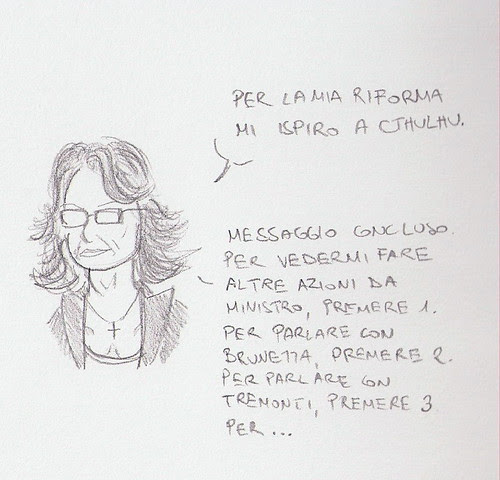 PER LA MIA RIFORMA
MI ISPIRO A CTHULHU.
MESSAGGIO CONCLUSO.
PER VEDERMI FARE
ALTRE AZIONI DA
MINISTRO, PREMERE 1.
PER PARLARE CON
BRUNETTA, PREMERE 2.
PER PARLARE CON
TREMONTI, PREMERE 3
PER ...